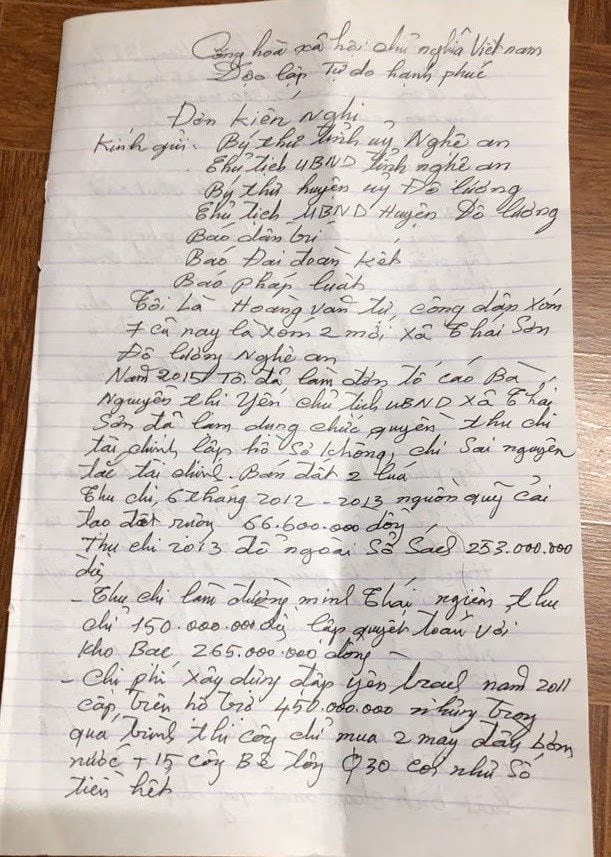 Cộng hoà xã hội chủ nghĩa Việt nam
Độc lập Tự do hạnh phúc
Đơn kiến Nghị
Kính gửi: Bý thư tỉnh uỷ Nghệ an
Chủ tịch UBND tỉnh nghệ an
Bý thư huyện uỷ Đô lương
Chủ tịch UBND Huyện Đô lương
Báo dân trí
Báo Đại đoàn kết
Báo pháp luật
Tôi là Hoàng văn tư, công dân xóm
7 cũ nay là xóm 2 mới xã Thái Sơn
Đô lương Nghệ an
Năm 2015 Tôi đã làm đơn tố cáo Bà
Nguyễn thi Yến chủ tịch UBND xã Thái
Sơn đã lam dung chức quyền thu chi
tài chính lập hồ sơ khống, chi sai nguyên
tắc tài chính. Bán đất 2 luá
Thu chi, 6 tháng 2012 - 2013 nguồn quỹ cải
tạo đất ruộng 66.600.000 đồng
Thu chi 2013 để ngoài Sổ Sách 253.000.000
đg
- Thu chi làm đường minh Thái thu
chi 150.000.000đg lập quyết toán với
kho Bạc 265.000.000 đồng
- Chi phí xây dựng đập yên trạch năm 2011
cấp trên hỗ trợ 450.000.000 nhưng trong
quá trình thi công chỉ mua 2 máy bơm
nước + 15 cống Bê tông Φ30 coi như Số
tiền hết